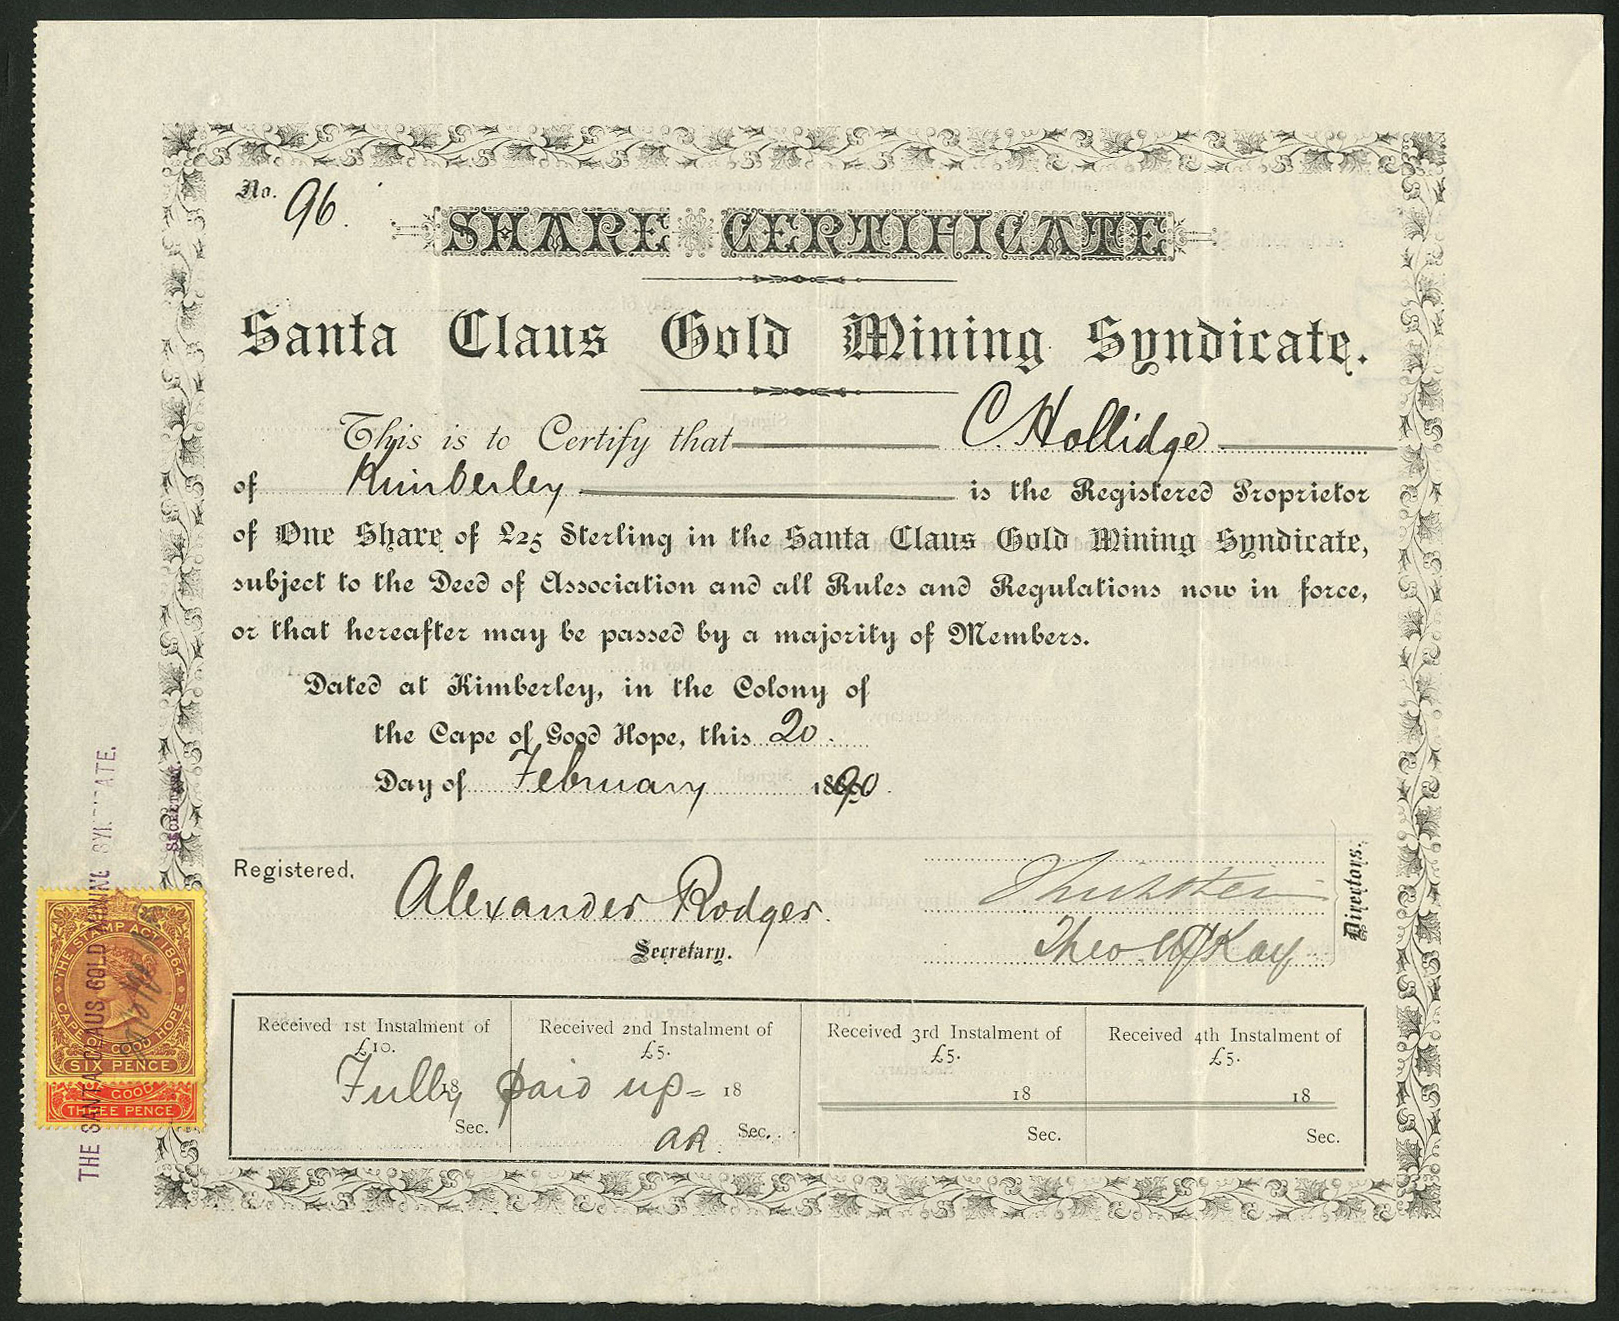 No. 96.
SHARE CERTIFICATE
Santa Claus Gold Mining Syndicate.
This is to Certify that C. Hollidge
of Kimberley is the Registered Proprietor
of One Share of £25 Sterling in the Santa Claus Gold Mining Syndicate,
subject to the Deed of Association and all Rules and Regulations now in force,
or that hereafter may be passed by a majority of Members.
Dated at Kimberley, in the Colony of
the Cape of Good Hope, this 20.
Day of February 1890.
Registered,
Alexander Rodger.
Secretary.
Theo
Directors.
Received 1st Instalment of £10.
Received 2nd Instalment of £5.
Received 3rd Instalment of £5.
Received 4th Instalment of £5.
Fully paid up
18 18 18 18
AR.
Sec. Sec. Sec. Sec.
THE SANTA CLAUS GOLD MINING SYNDICATE.
Secretary.
THE STAMP ACT 1864
CAPE OF GOOD HOPE
SIX PENCE
GOOD
THREE PENCE